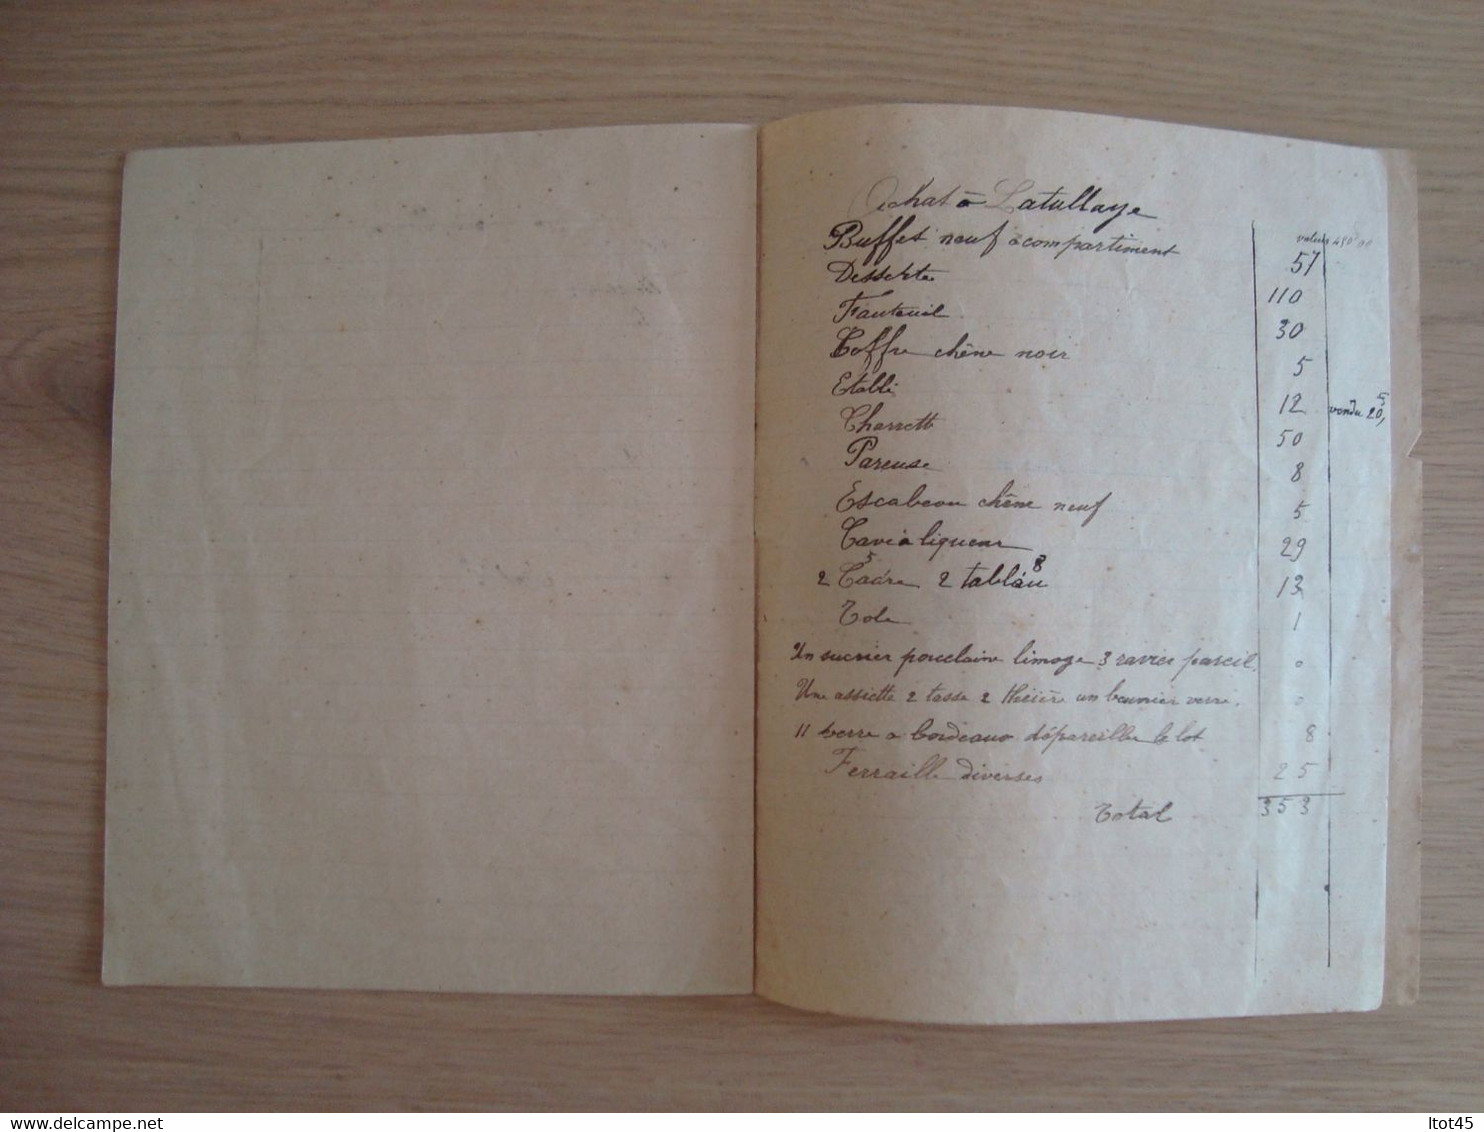 Achat à Latullaye
valeur
Buffet neuf à compartiment 57
Desserte 110
Fauteuil 30
Coffre chêne noir 5
Etabli 12 vendu 20,5
Charrett 50
Pareuse 8
Escabeau chêne neuf 5
Cave à liqueur 29
2 Cadre 5 2 tableau 8 13
Tole 1
Un sucrier porcelaine limoge 3 ravier pareil 0
Une assiette 2 tasse 2 théière un beurrier verre. 0
11 verre a bordeaux dépareiller le lot 8
Ferraille diverses 25
Total 353
ltot45